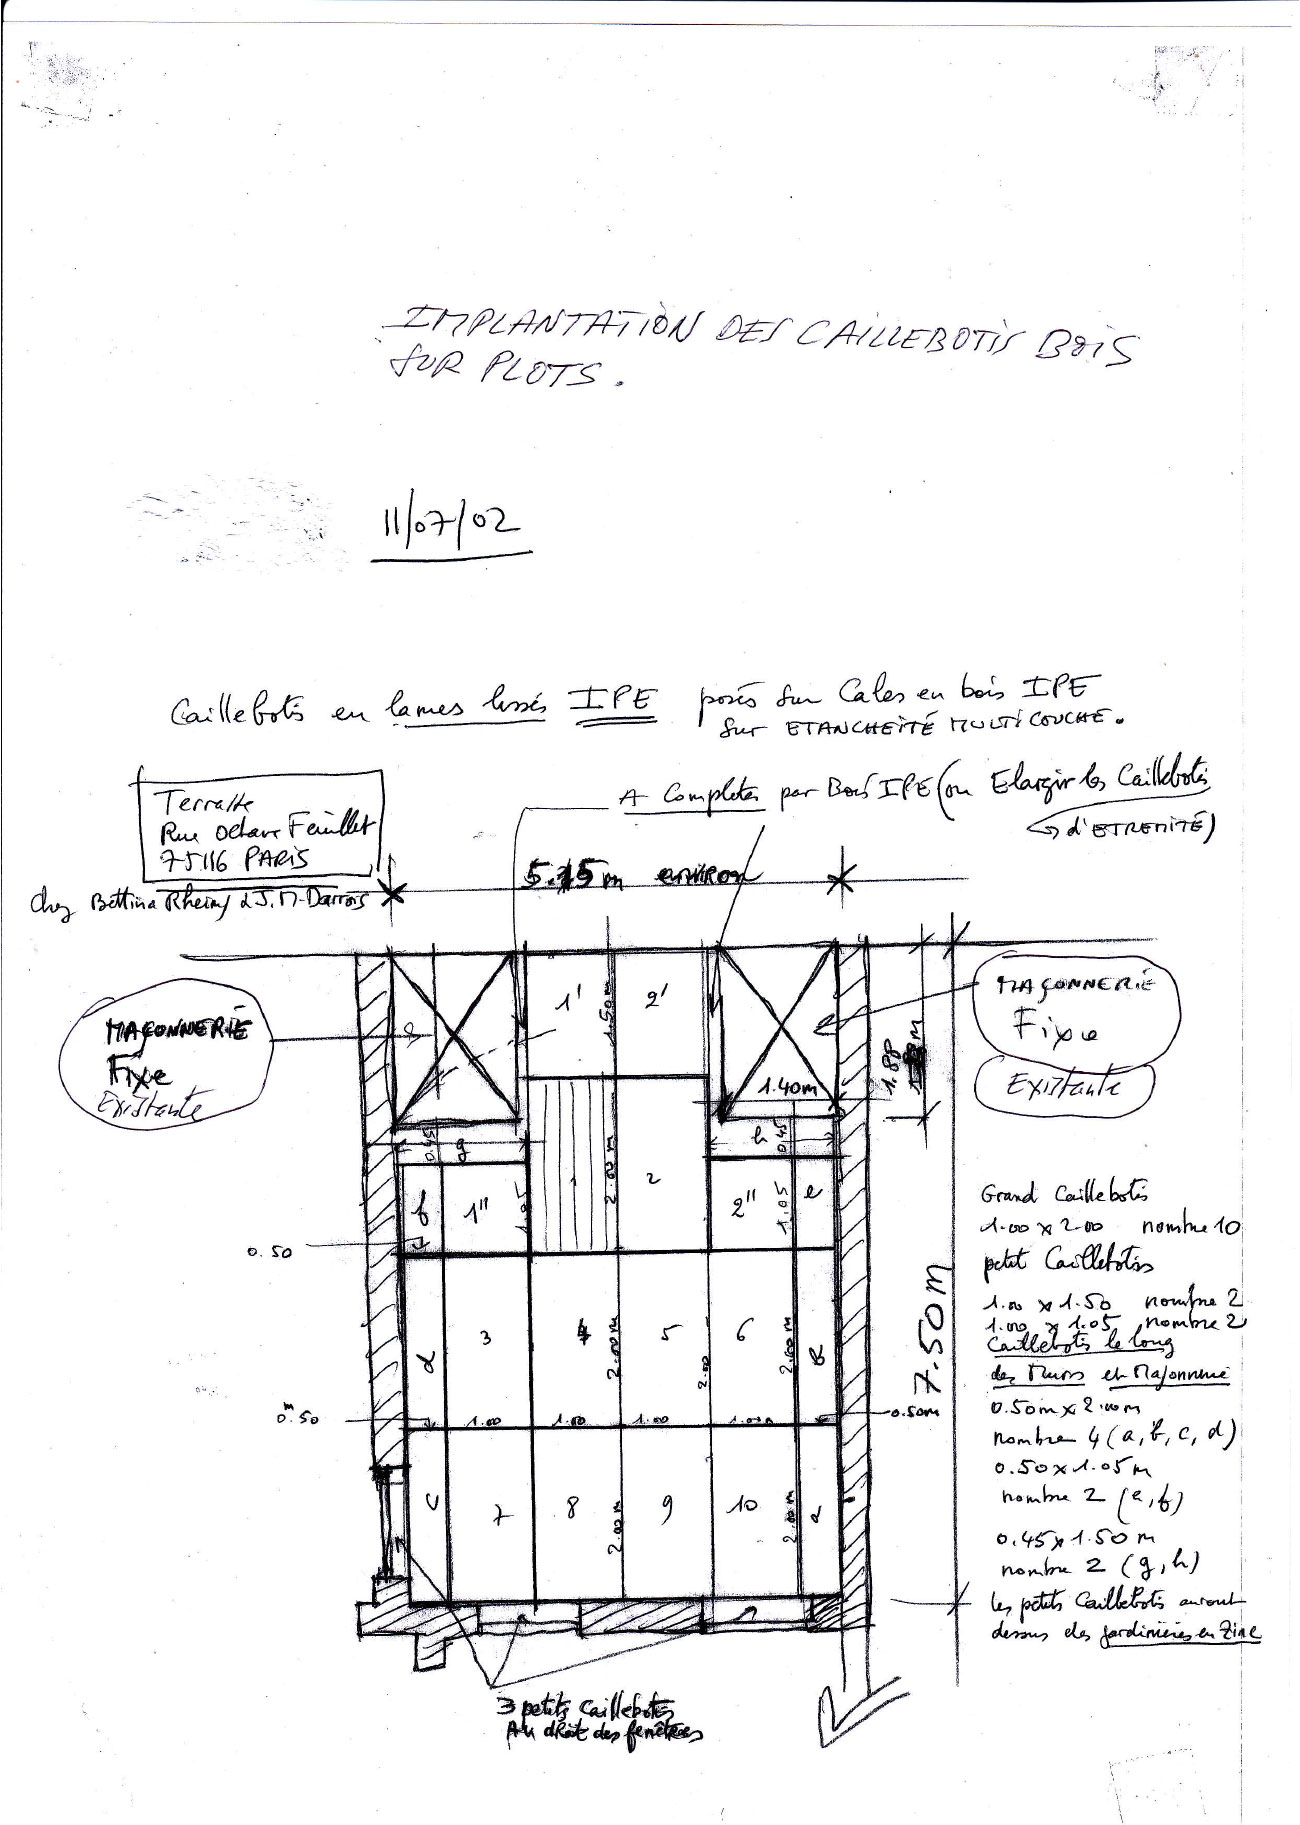 IMPLANTATION DES CAILLEBOTIS BOIS
SUR PLOTS.
11/07/02
Caillebotis en lames lissés IPE posés sur Cales en bois IPE
sur ETANCHEITÉ MULTICOUCHE.
A Completer par Bois IPE (ou Elargir les Caillebotis
d'ETREMITÉ)
Terrasse
Rue Octave Feuillet
75116 PARIS
chez Bettina Rheims & J.M. Darrois
5.15 m environ
MAÇONNERIE
Fixe
Existante
MAÇONNERIE
Fixe
EXISTANTE
1' 1.50m 2'
1.40m
1.88
m
0.45 g
h 0.45
f 1" 1.05
2.00 m
2
2" 1.05 e
0.50
7.50 m
d 3 4 2.00m 5 2.00 6 2.00m B
0.50 m
1.00 1.00 1.00 1.00
0.50m
c 7 8 2.00m 9 10 2.00m a
3 petits Caillebotis
Au droit des fenêtres
Grand Caillebotis
1.00 x 2.00 nombre 10
petit Caillebotis
1.00 x 1.50 nombre 2
1.00 x 1.05 nombre 2
Caillebotis le long
des Murs et Maçonnerie
0.50m x 2.00m
nombre 4 (a, b, c, d)
0.50 x 1.05 m
nombre 2 (e, f)
0.45 x 1.50 m
nombre 2 (g, h)
les petits Caillebotis auront
dessus des jardinières en Zinc